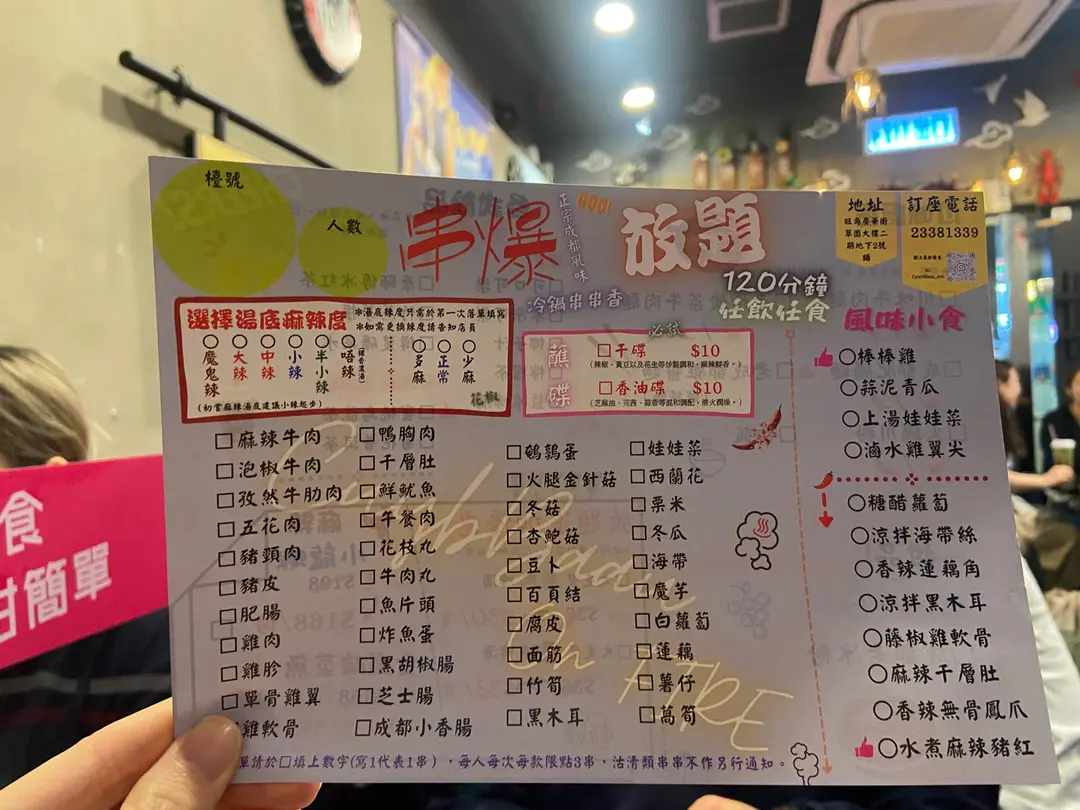 檯號
人數
串爆
正宗成都風味
放題
120分鐘
任飲任食
冷鍋串串香
地址
旺角廣華街
單園大樓二
期地下2號
舖
訂座電話
23381339
選擇湯底麻辣度
*湯底辣度只需於第一次落單填寫
*如需更換辣度請告知店員
魔鬼辣
大辣
中辣
小辣
半小辣
唔辣
多麻
正常
少麻
花椒
(初嘗麻辣湯底建議小辣起步)
蘸碟
必試
□干碟 $10
(辣椒、黃豆以及花生等炒製調和，麻辣鮮香。)
□香油碟 $10
(芝麻油、芫茜、蒜蓉等混和調配，清火潤燥。)
□麻辣牛肉
□泡椒牛肉
□孜然牛肋肉
□五花肉
□豬頸肉
□豬皮
□肥腸
□雞肉
□雞胗
□單骨雞翼
雞軟骨
□鴨胸肉
□干層肚
□鮮魷魚
□午餐肉
□花枝丸
□牛肉丸
□魚片頭
□炸魚蛋
□黑胡椒腸
□芝士腸
□成都小香腸
□鵪鶉蛋
□火腿金針菇
□冬菇
□杏鮑菇
□豆卜
□百頁結
□腐皮
□面筋
□竹筍
□黑木耳
□娃娃菜
□西蘭花
□粟米
□冬瓜
□海帶
□魔芋
□白蘿蔔
□蓮藕
□薯仔
□萵筍
風味小食
○棒棒雞
○蒜泥青瓜
○上湯娃娃菜
○滷水雞翼尖
○糖醋蘿蔔
○涼拌海帶絲
○香辣蓮藕角
○涼拌黑木耳
○藤椒雞軟骨
○麻辣干層肚
○香辣無骨鳳爪
○水煮麻辣豬紅
On FIRE
單請於□填上數字(寫1代表1串)，每人每次每款限點3串，沽清類串串不作另行通知。
食
甘簡單